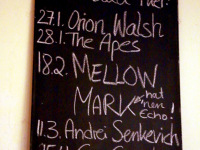 27.1. Orion Walsh
28.1. The Apes
18.2. MELLOW
MARK hat
'nen
Echo!
11.3. Andrei Senkevich